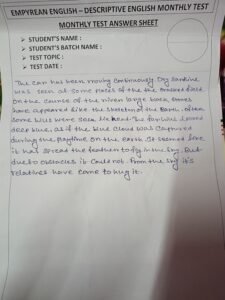 EMPYREAN ENGLISH – DESCRIPTIVE ENGLISH MONTHLY TEST
MONTHLY TEST ANSWER SHEET
➤ STUDENT'S NAME :
➤ STUDENT'S BATCH NAME :
➤ TEST TOPIC :
➤ TEST DATE :
The car has been moving continuously. Dry
was seen at some places of the the
On the course of the river large back
have appeared like the skeleton of the Earth. Often
some were seen. The
deep blue, as if the blue cloud was captured
during the playtime on the earth. It seemed like
it has spread the feather to fly in the sky. But
due to obstacles it could not. From the sky it's
relatives have come to hug it.